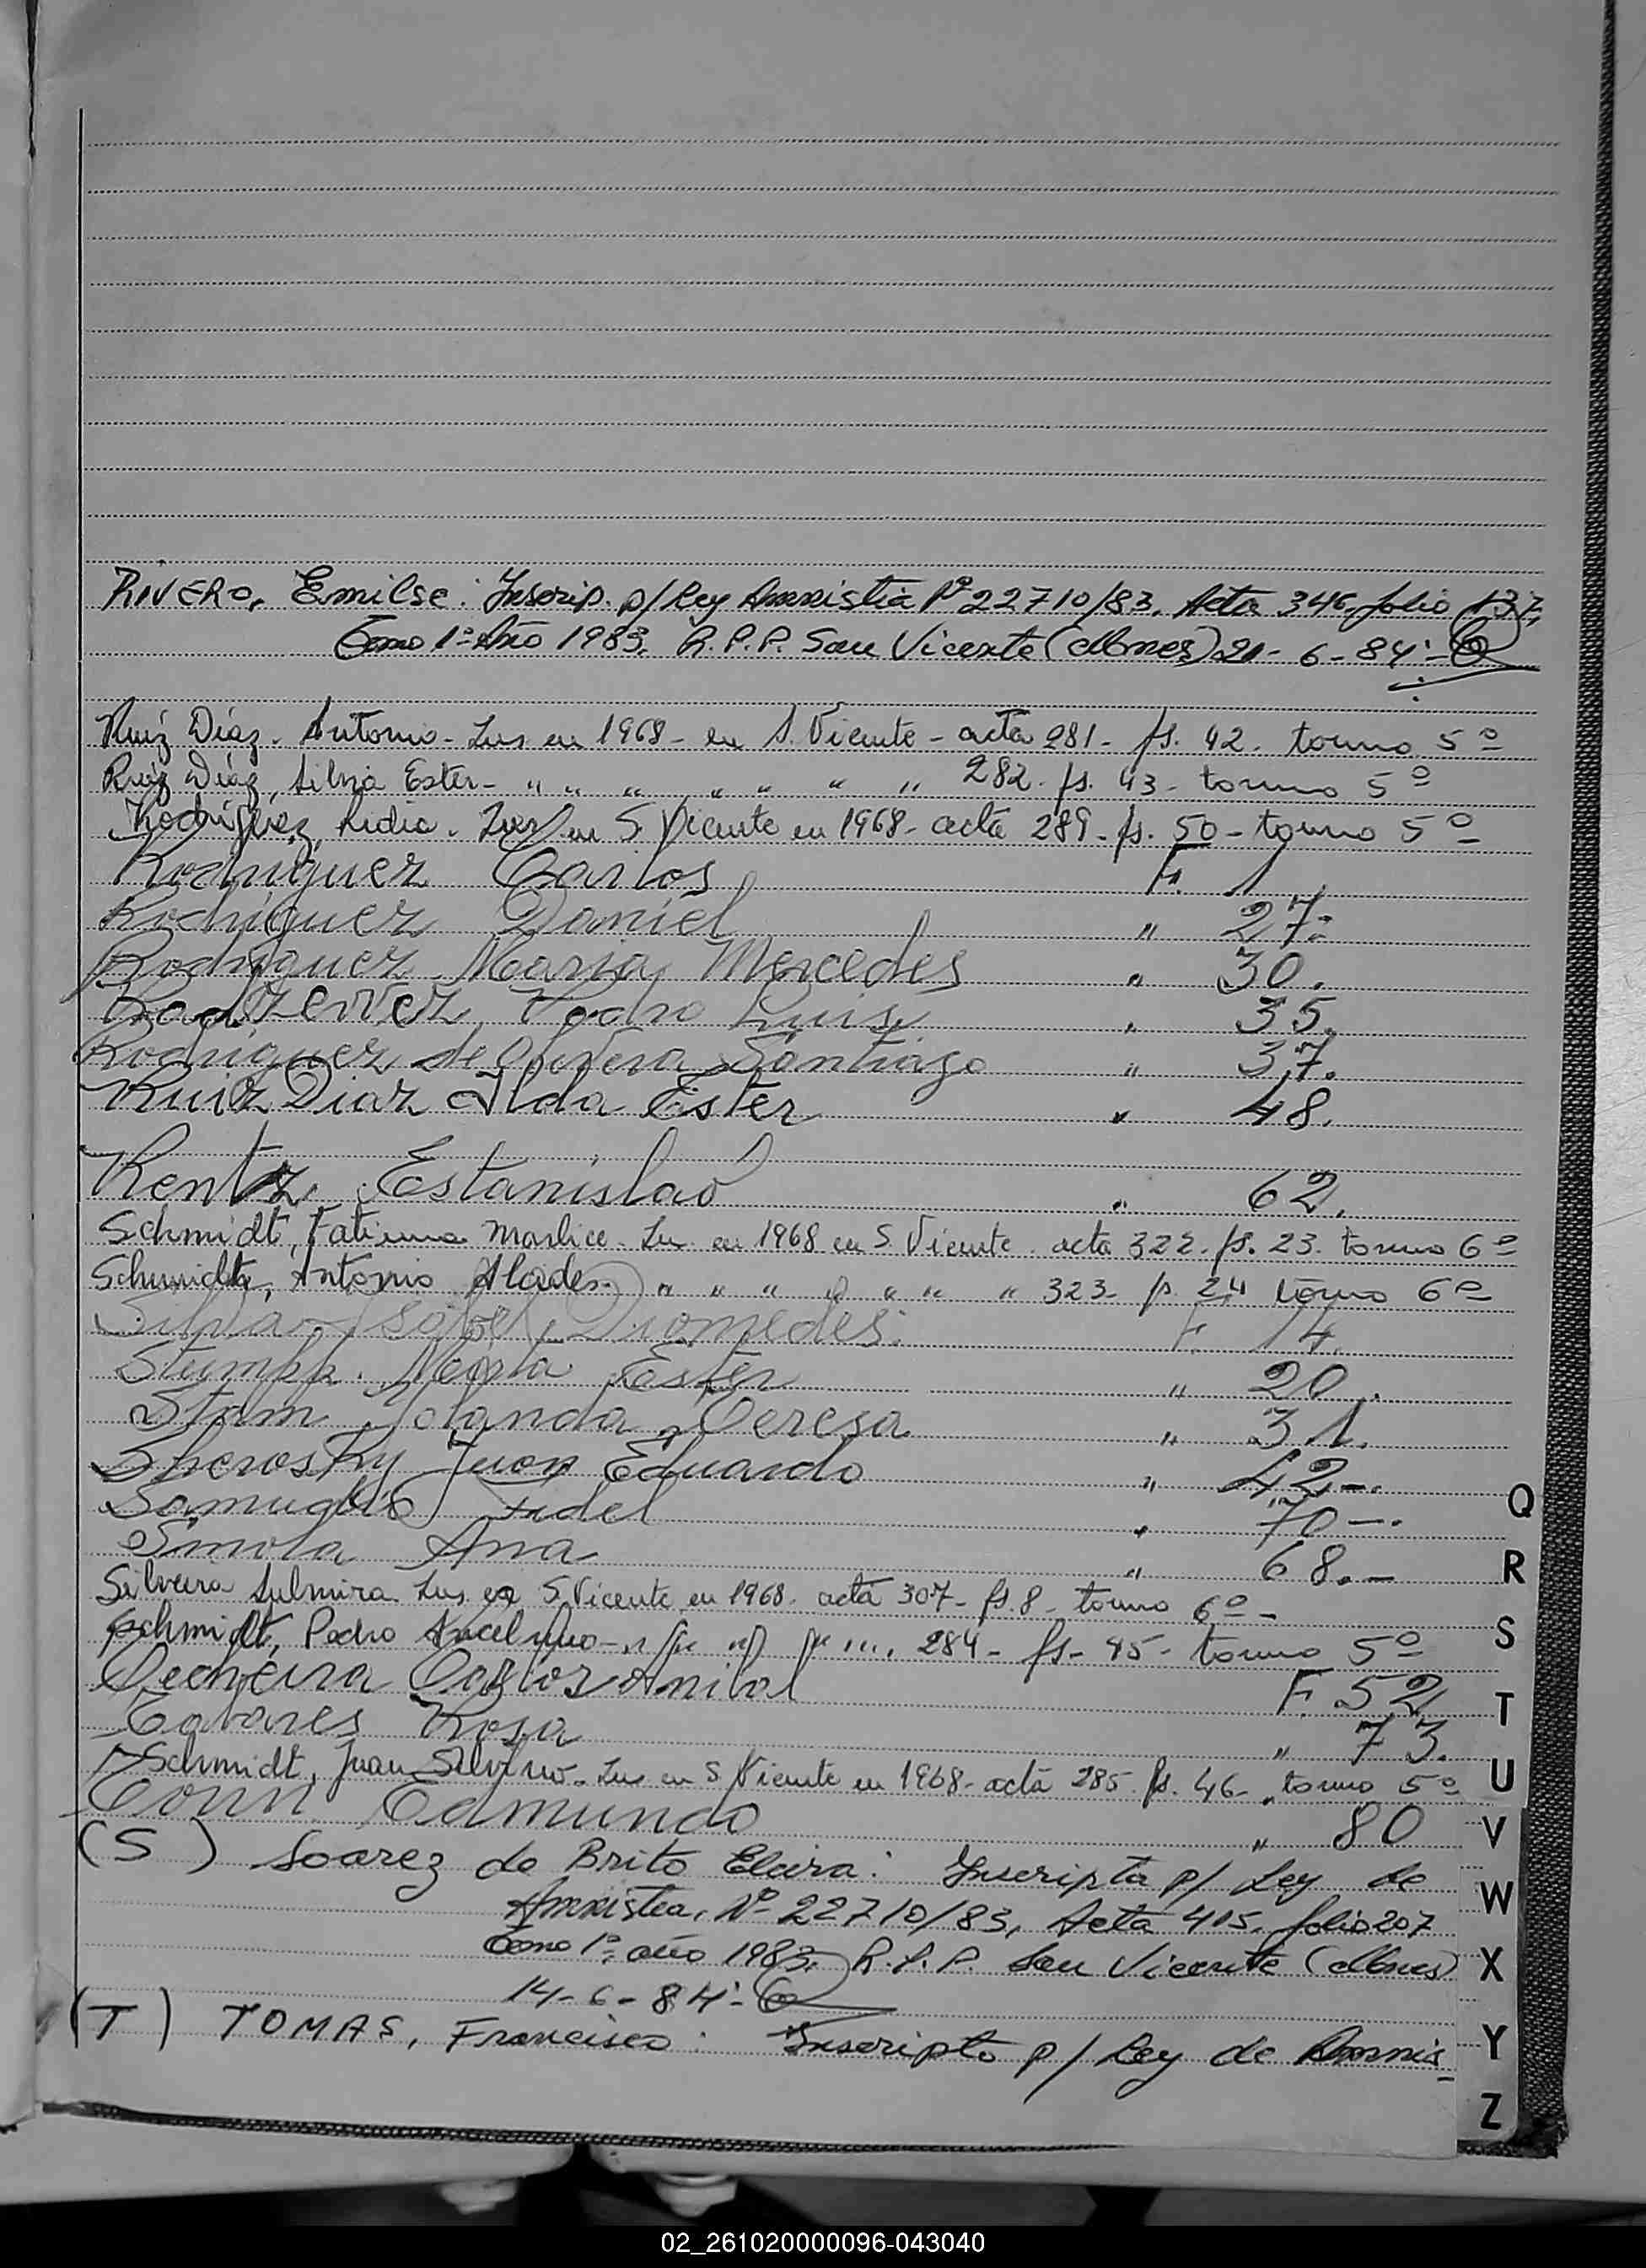 RIVERO, Emilse: Inscrip. p/ Ley Amnistia Nº 22710/83. Acta 346, folio 137,
Tomo 1º Año 1983. R.P.P. San Vicente (Mnes) 21-6-84.-
Ruiz Díaz. Antonio - Ins. en 1968 - en S. Vicente - acta 281 - fs. 42. tomo 5º
Ruiz Díaz, Silvia Ester - " " " " " " " 282. fs. 43 - tomo 5º
Rodríguez, Lidia. Ins. en S. Vicente en 1968 - acta 289 - fs. 50 - tomo 5º
Rodriguez Carlos F. 1
Rodriguez Daniel " 27.-
Rodriguez Maria Mercedes " 30.
Pedro Luis " 35.
Rodriguez de Olivera Santiago " 37.
Ruiz Diaz Ilda Ester " 48.
Rentz Estanislao " 62.
Schmidt, Fatima Marlice. Ins. en 1968 en S. Vicente. acta 322. fs. 23. tomo 6º
Schmidt, Antonio Alades. " " " " " " " 323. fs. 24 tomo 6º
Silva Isabel Diomedes. F. 14.
Stumpf. Marta Ester " 20.
Stam Yolanda Teresa " 31.
Juan Eduardo " 42.-
Samudio Fidel " 70.-
Smola Ana " 68.-
Silveira Ins. en S. Vicente en 1968. acta 307 - fs. 8 - tomo 6º -
Schmidt, Pedro Ancelmo - " " " " " 284 - fs. 45 - tomo 5º
Techeira Carlos Anibal F. 52
Tavares Rosa " 73.
Schmidt, Juan Silvino. Ins. en S. Vicente en 1968 - acta 285. fs. 46 - tomo 5º
Edmundo " 80
(S) Soarez de Brito Elvira: Inscripta p/ Ley de
Amnistia, Nº 22710/83, Acta 405. folio 207
Tomo 1º año 1983. R.P.P. San Vicente (Mnes)
14-6-84.-
(T) TOMAS, Francisco: Inscripto p/ Ley de Amnis-
Q
R
S
T
U
V
W
X
Y
Z
02_261020000096-043040